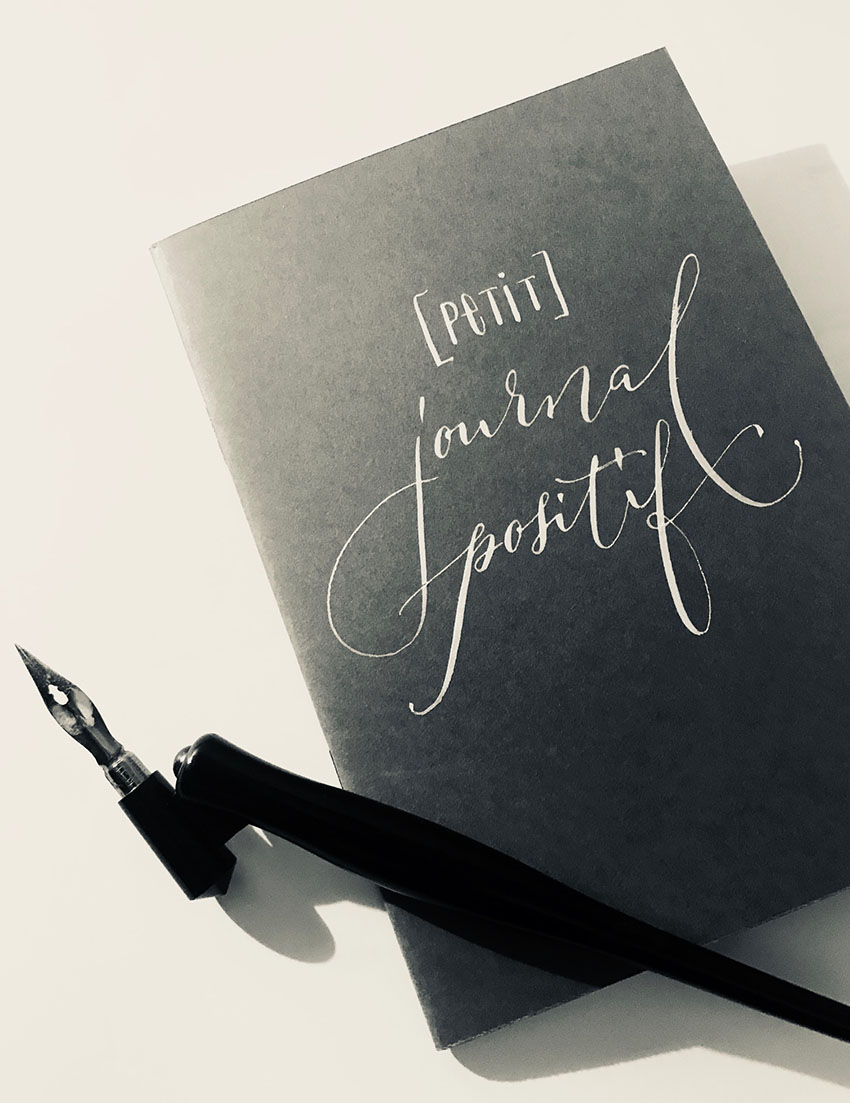 [PETIT]
journal
positif